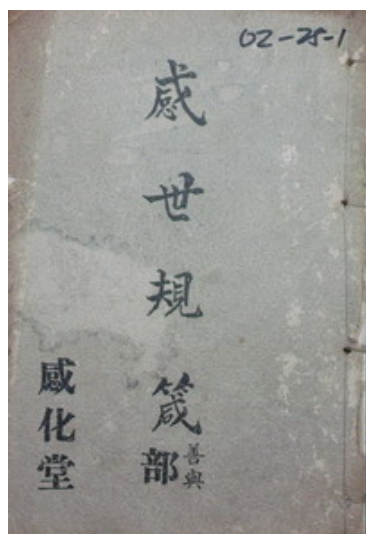 02-25-1
感世規箴
善與
部
感化堂